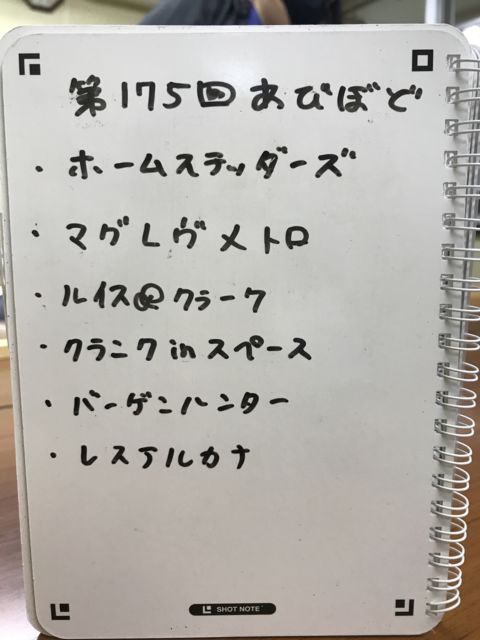 第175回 あびぼど
・ホームステッダーズ
・マグレヴメトロ
・ルイス@クラーク
・クランク in スペース
・バーゲンハンター
・レステルカナ
SHOT NOTE